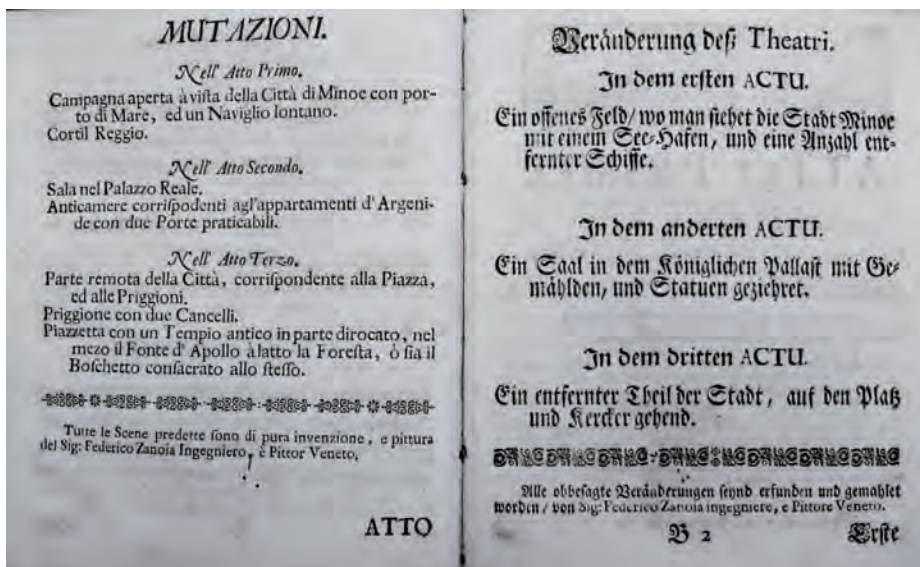 MUTAZIONI.
Nell' Atto Primo.
Campagna aperta à vista della Città di Minoe con por-
to di Mare, ed un Naviglio lontano.
Cortil Reggio.
Nell' Atto Secondo.
Sala nel Palazzo Reale.
Anticamere corrispodenti agl'appartamenti d'Argeni-
de con due Porte praticabili.
Nell' Atto Terzo.
Parte remota della Città, corrispondente alla Piazza,
ed alle Priggioni.
Priggione con due Cancelli.
Piazzetta con un Tempio antico in parte dirocato, nel
mezo il Fonte d'Apollo à latto la Foresta, ò sia il
Boschetto consacrato allo stesso.
Tutte le Scene predette sono di pura invenzione, e pittura
del Sig: Federico Zanoia Ingegniero, è Pittor Veneto.
ATTO
Veränderung deß Theatri.
In dem ersten ACTU.
Ein offenes Feld/ wo man siehet die Stadt Minoe
mit einem See-Hafen, und eine Anzahl ent-
fernter Schiffe.
In dem anderten ACTU.
Ein Saal in dem Königlichen Pallast mit Ge-
mählden, und Statuen geziehret.
In dem dritten ACTU.
Ein entfernter Theil der Stadt, auf den Platz
und Kercker gehend.
Alle obbesagte Veränderungen seynd erfunden und gemahlet
worden / von Sig: Federico Zanoia ingegniere, e Pittore Veneto.
B 2 Erste